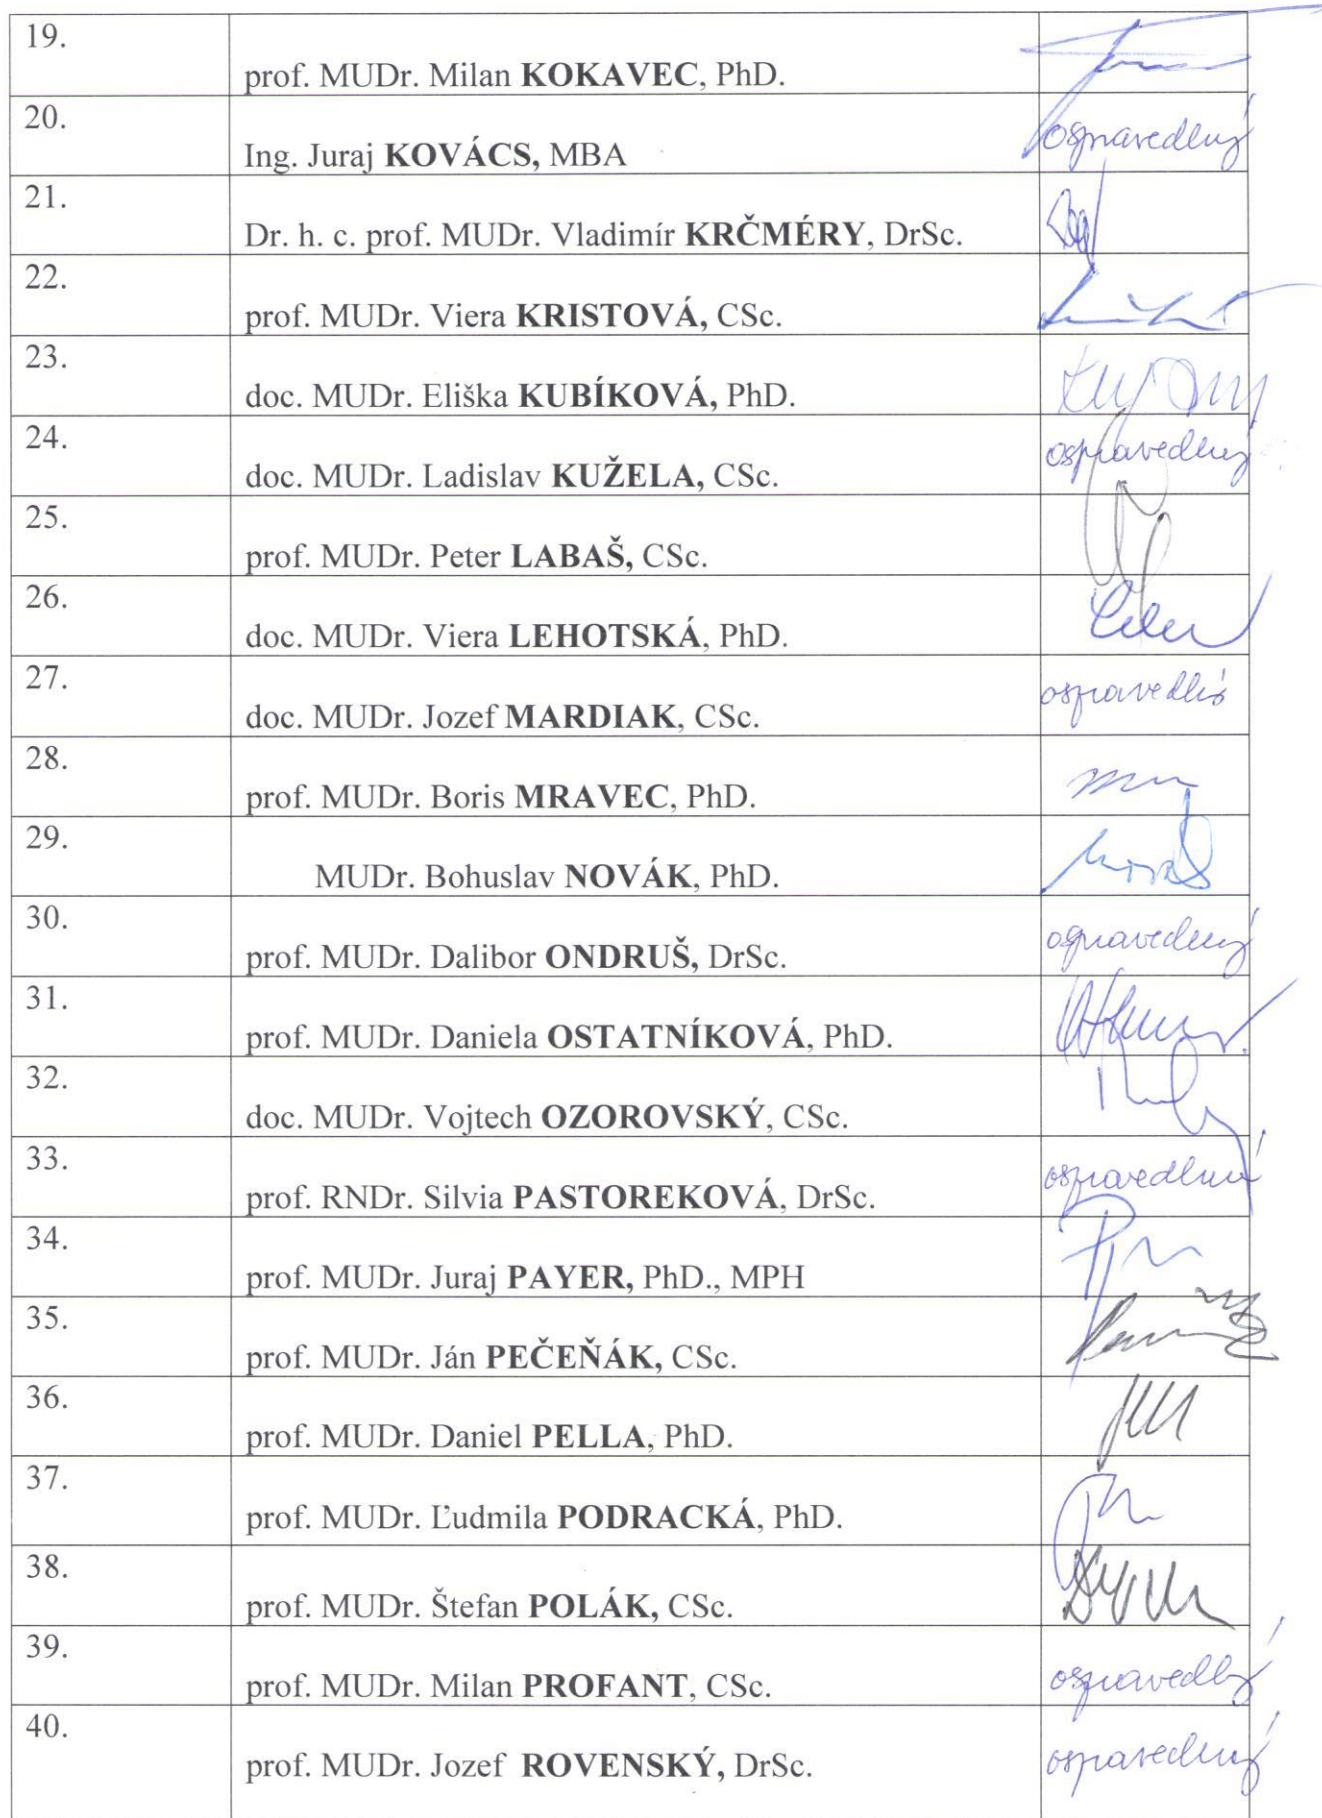 19.
prof. MUDr. Milan KOKAVEC, PhD.
20.
Ing. Juraj KOVÁCS, MBA
ospravedlnný
21.
Dr. h. c. prof. MUDr. Vladimír KRČMÉRY, DrSc.
22.
prof. MUDr. Viera KRISTOVÁ, CSc.
23.
doc. MUDr. Eliška KUBÍKOVÁ, PhD.
24.
doc. MUDr. Ladislav KUŽELA, CSc.
ospravedlnný
25.
prof. MUDr. Peter LABAŠ, CSc.
26.
doc. MUDr. Viera LEHOTSKÁ, PhD.
27.
doc. MUDr. Jozef MARDIAK, CSc.
28.
prof. MUDr. Boris MRAVEC, PhD.
29.
MUDr. Bohuslav NOVÁK, PhD.
30.
prof. MUDr. Dalibor ONDRUŠ, DrSc.
31.
prof. MUDr. Daniela OSTATNÍKOVÁ, PhD.
32.
doc. MUDr. Vojtech OZOROVSKÝ, CSc.
33.
prof. RNDr. Silvia PASTOREKOVÁ, DrSc.
34.
prof. MUDr. Juraj PAYER, PhD., MPH
35.
prof. MUDr. Ján PEČEŇÁK, CSc.
36.
prof. MUDr. Daniel PELLA, PhD.
37.
prof. MUDr. Ľudmila PODRACKÁ, PhD.
38.
prof. MUDr. Štefan POLÁK, CSc.
39.
prof. MUDr. Milan PROFANT, CSc.
40.
prof. MUDr. Jozef ROVENSKÝ, DrSc.